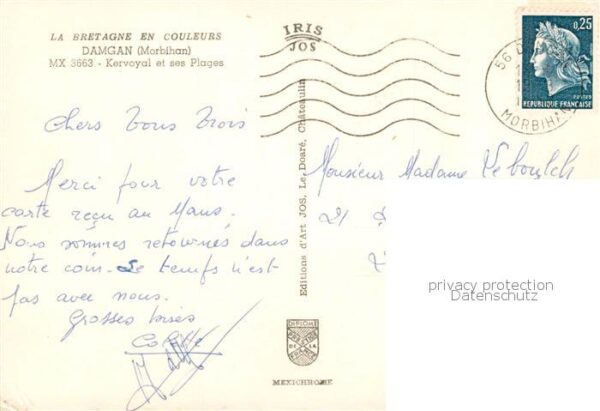 LA BRETAGNE EN COULEURS
DAMGAN (Morbihan)
MX 3663 - Kervoyal et ses Plages
IRIS
JOS
0,25
REPUBLIQUE FRANCAISE
56 D
MORBIHAN
Chers Vous Trois
Merci pour votre
carte reçu au Mans.
Nous sommes retournés dans
notre coin. Le temps n'est
pas avec nous.
Grosses bises
Colette
Editions d'Art JOS, Le Doaré, Châteaulin
Monsieur Madame Le
21
privacy protection
Datenschutz
MEXICHROME